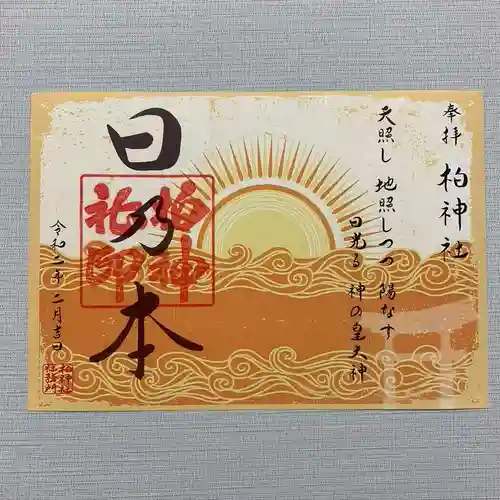 奉拝 柏神社
天照し 地照しつつ 陽なす
日光る 神の皇大神
日乃本
柏神社印
令和二年二月吉日
柏神社社務所